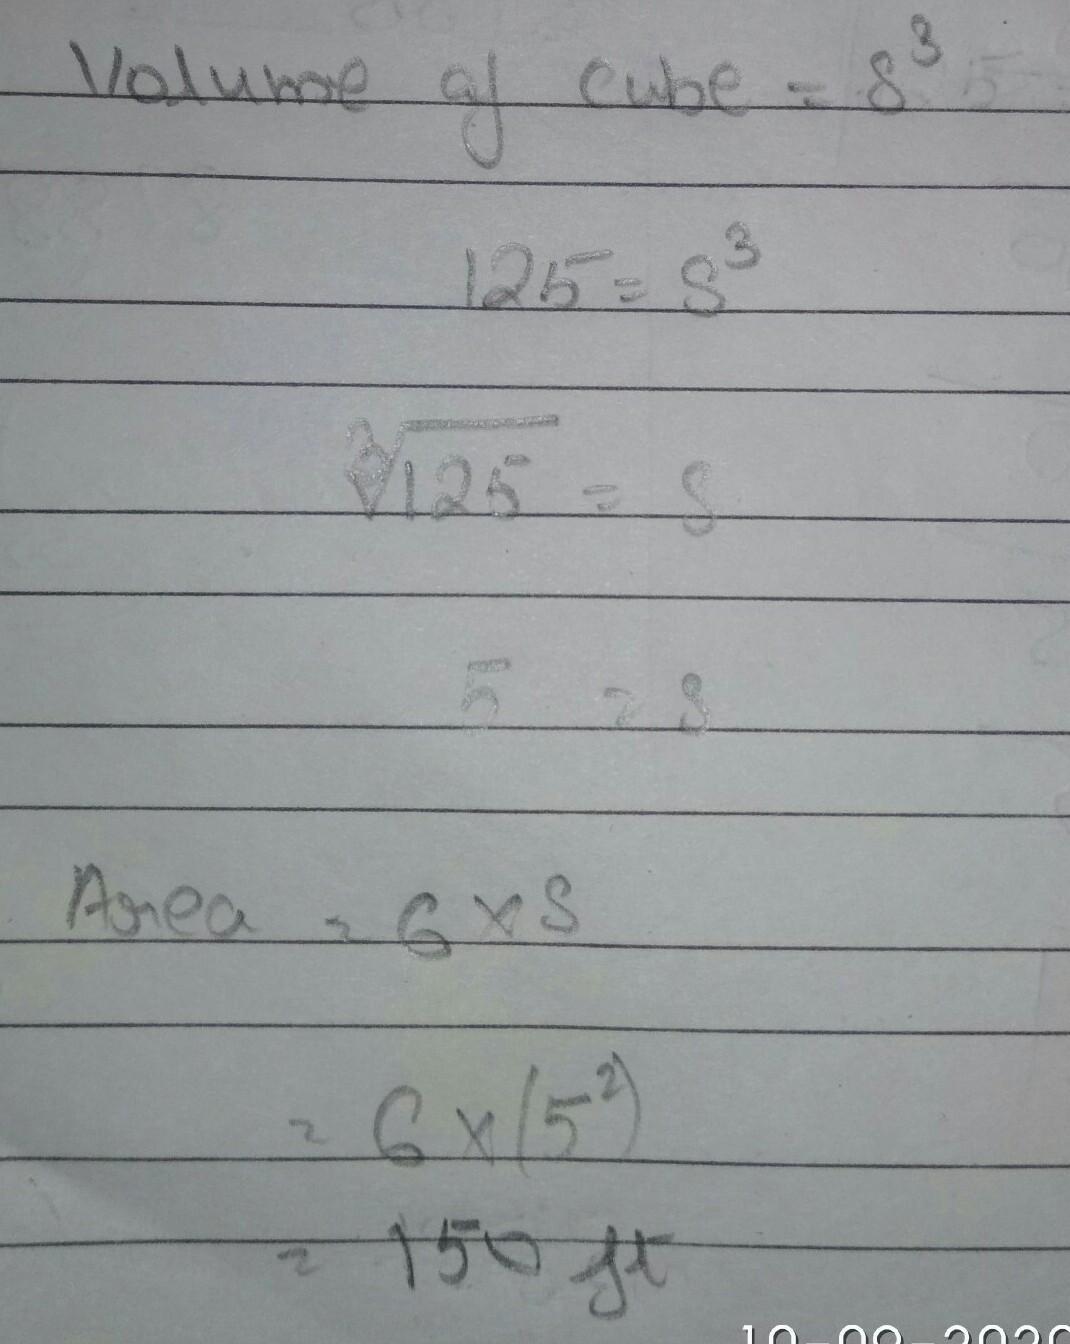 Volume of cube = s³
125 = s³
∛125 = s
5 = s
Area = 6 × s
= 6 × (5²)
= 150 ft